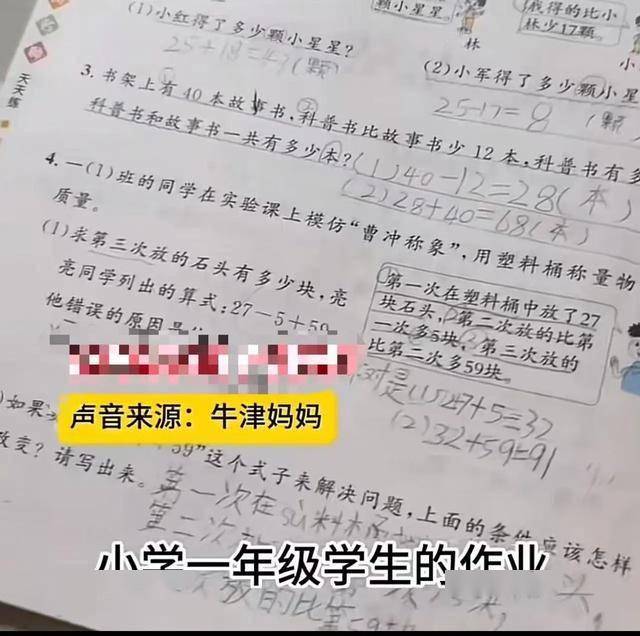 天天练
(1)小红得了多少颗小星星?
25+18=43(颗)
颗小星星。
林
我得的比小
林少17颗。
小
(2)小军得了多少颗小星
25-17=8(颗)
3. 书架上有40本故事书,科普书比故事书少12本,科普书有多
科普书和故事书一共有多少本?
(1)40-12=28(本)
(2)28+40=68(本)
4. 一(1)班的同学在实验课上模仿“曹冲称象”,用塑料桶称量物
质量。
(1)求第三次放的石头有多少块,亮
亮同学列出的算式:27-5+59
他错误的原因是
第一次在塑料桶中放了27
块石头,第二次放的比第
一次多5块,第三次放的
比第二次多59块。
(1)27+5=32
(2)32+59=91
声音来源:牛津妈妈
)如果
59”这个式子来解决问题,上面的条件应该怎样
改变?请写出来。
第一次在sù料桶
第二次
小学一年级学生的作业
头,
放的比第